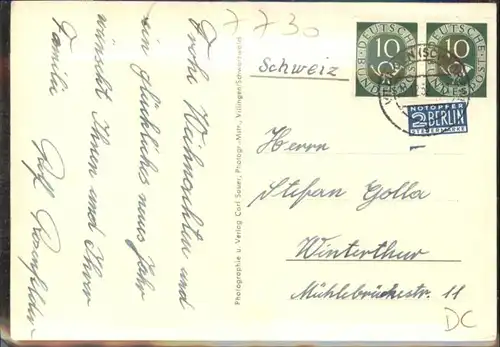 7730
Frohe Weihnachten und
ein glückliches neues Jahr
wünscht Ihnen und Ihrer
Familie
Rolf
Photographie u. Verlag Carl Sauer, Photogr.-Mstr., Villingen/Schwarzwald
Schweiz
DEUTSCHE BUNDESPOST
10
DEUTSCHE BUNDESPOST
10
NOTOPFER
2 BERLIN
STEUERMARKE
Herrn
Stefan Golla
Winterthur
Mühlebrückestr. 11
DC